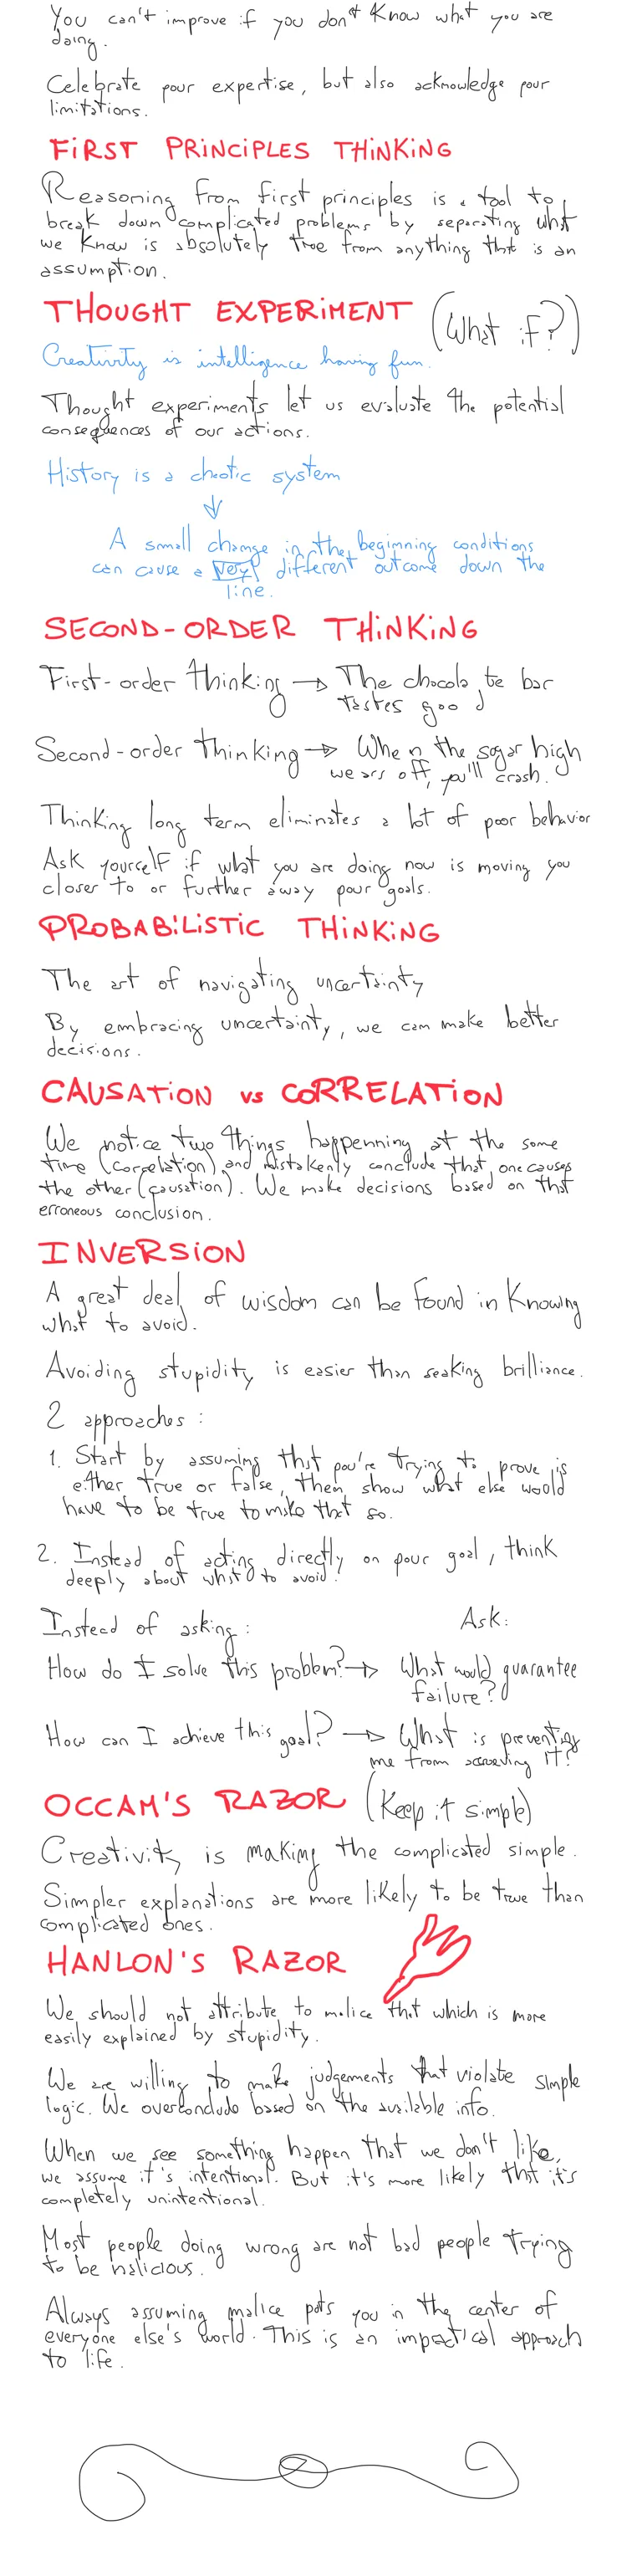 You can't improve if you don't know what you are
doing.
Celebrate your expertise, but also acknowledge your
limitations.
FIRST PRINCIPLES THINKING
Reasoning from first principles is a tool to
break down complicated problems by separating what
we know is absolutely true from anything that is an
assumption.
THOUGHT EXPERIMENT (What if?)
Creativity is intelligence having fun.
Thought experiments let us evaluate the potential
consequences of our actions.
History is a chaotic system
↓
A small change in the beginning conditions
can cause a very different outcome down the
line.
SECOND-ORDER THINKING
First-order thinking → The chocolate bar
tastes good
Second-order thinking → When the sugar high
wears off, you'll crash.
Thinking long term eliminates a lot of poor behavior
Ask yourself if what you are doing now is moving you
closer to or further away your goals.
PROBABILISTIC THINKING
The art of navigating uncertainty
By embracing uncertainty, we can make better
decisions.
CAUSATION vs CORRELATION
We notice two things happenning at the same
time (correlation) and mistakenly conclude that one causes
the other (causation). We make decisions based on that
erroneous conclusion.
INVERSION
A great deal of wisdom can be found in knowing
what to avoid.
Avoiding stupidity is easier than seaking brilliance.
2 approaches:
1. Start by assuming that you're trying to prove is
either true or false, then show what else would
have to be true to make that so.
2. Instead of acting directly on your goal, think
deeply about what to avoid.
Instead of asking: Ask:
How do I solve this problem? → What would guarantee
failure?
How can I achieve this goal? → What is preventing
me from achieving it?
OCCAM'S RAZOR (Keep it simple)
Creativity is making the complicated simple.
Simpler explanations are more likely to be true than
complicated ones.
HANLON'S RAZOR
We should not attribute to malice that which is more
easily explained by stupidity.
We are willing to make judgements that violate simple
logic. We overconclude based on the available info.
When we see something happen that we don't like,
we assume it's intentional. But it's more likely that it's
completely unintentional.
Most people doing wrong are not bad people trying
to be malicious.
Always assuming malice puts you in the center of
everyone else's world. This is an impractical approach
to life.